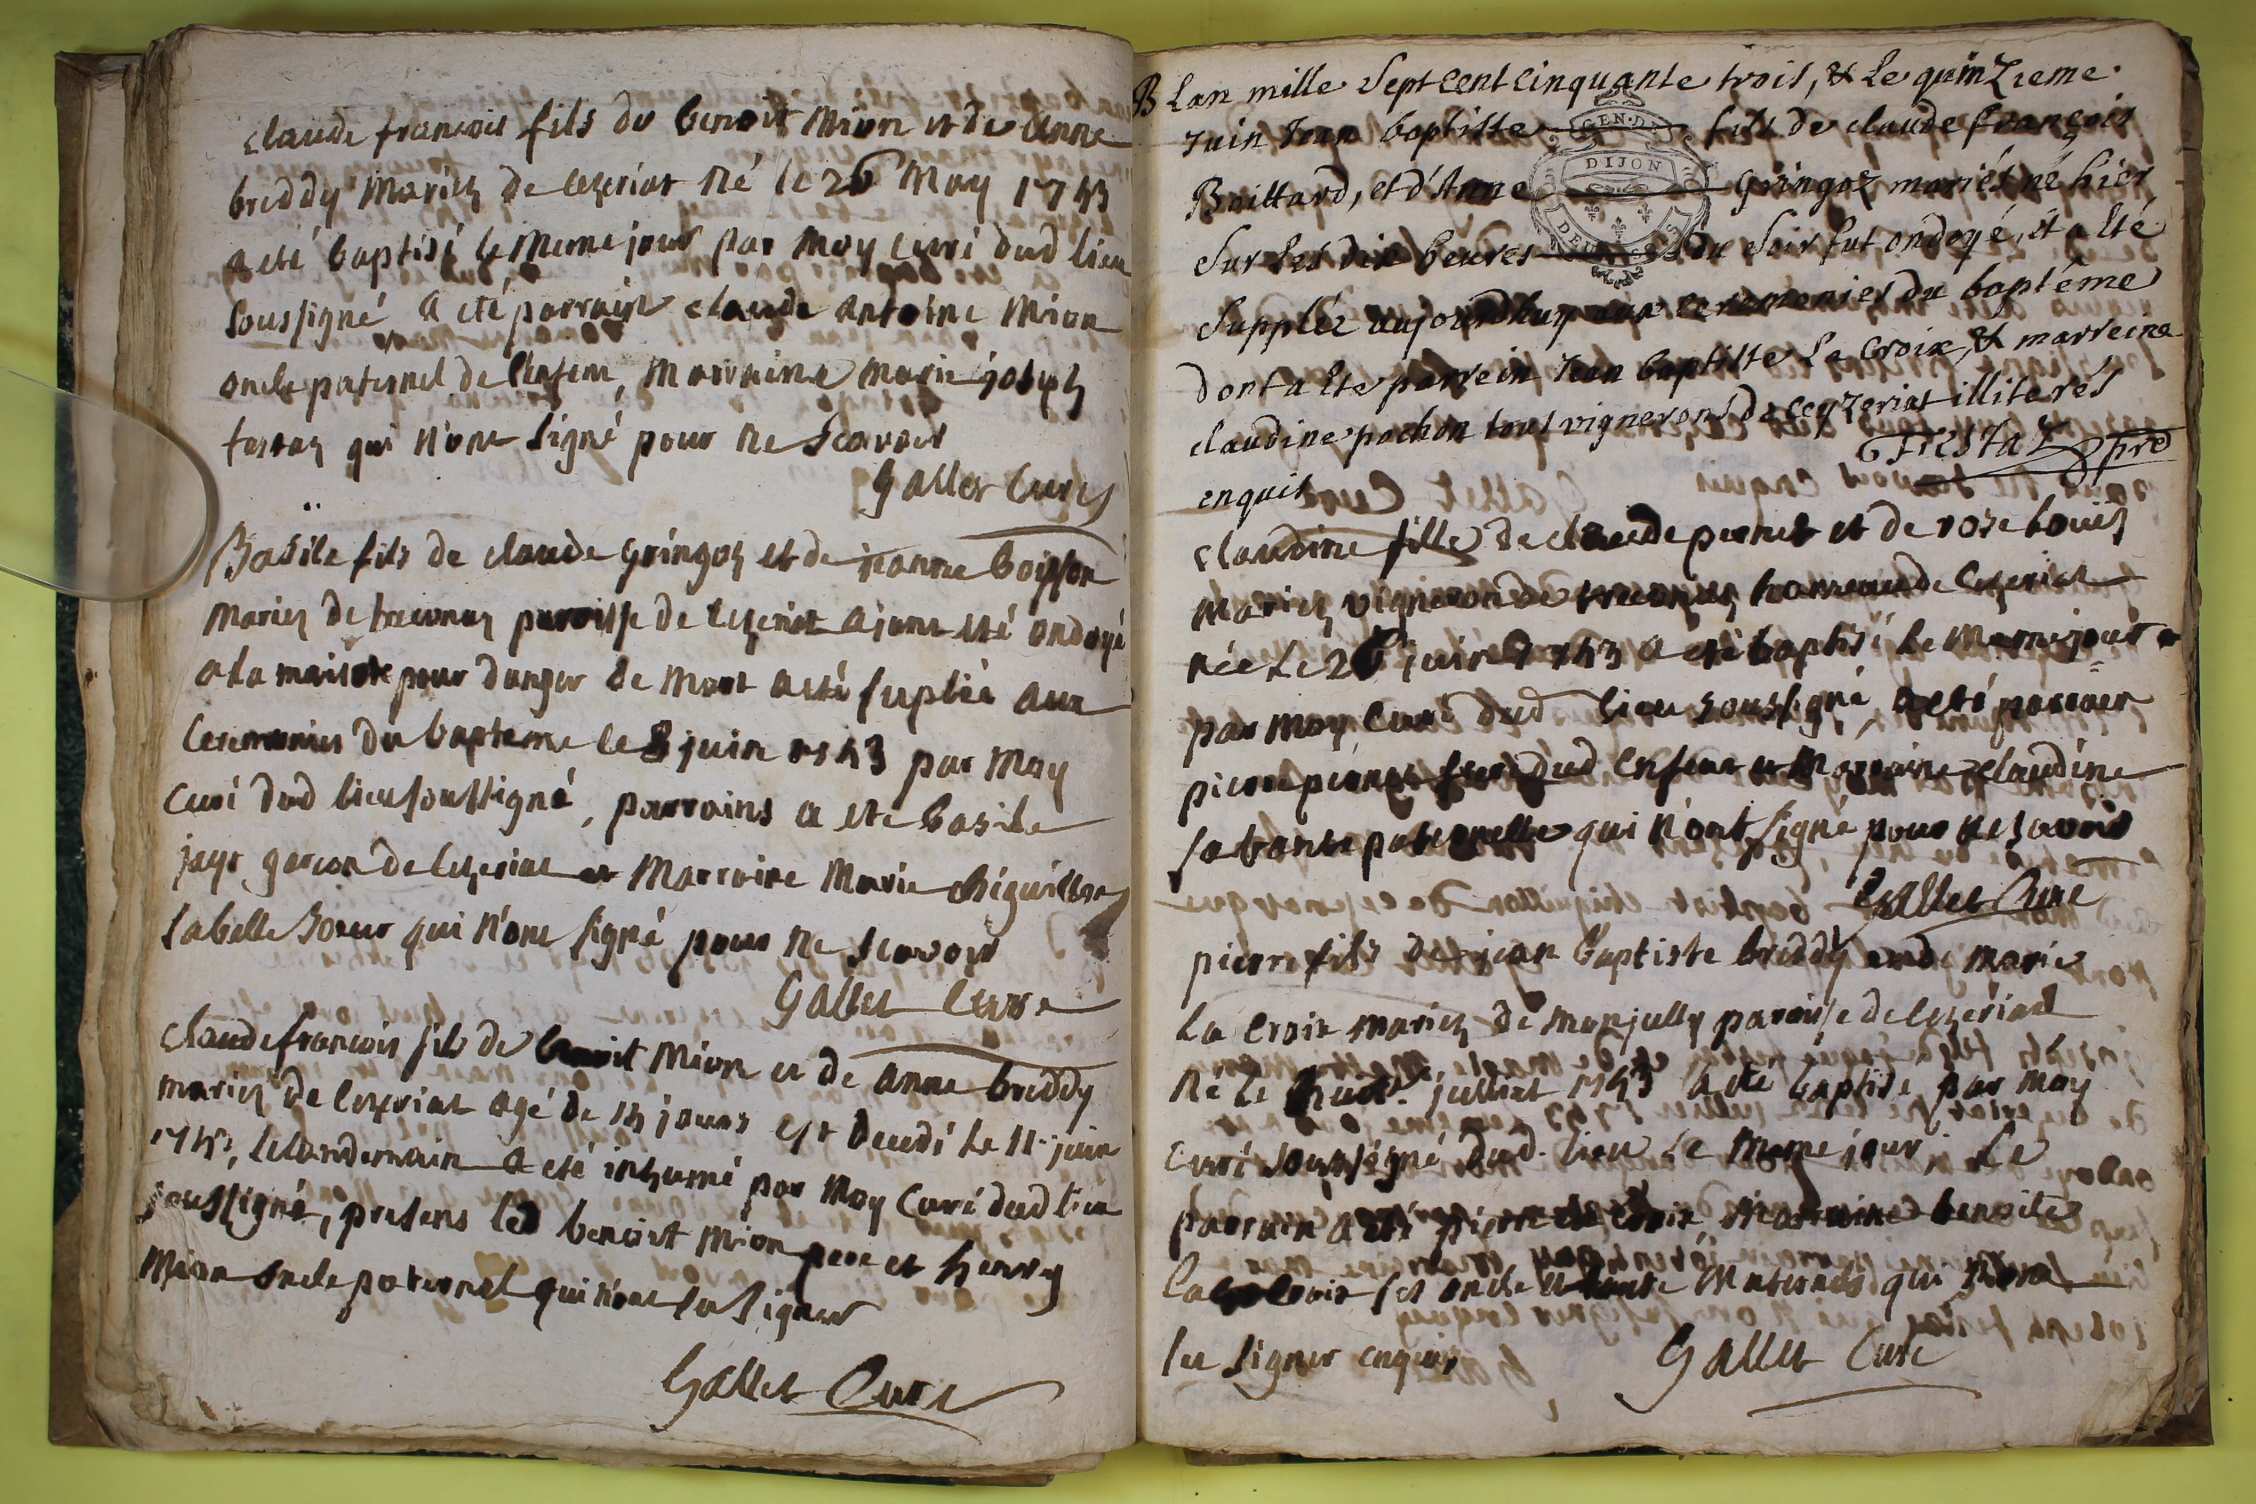 claude francois fils de benoit Mion et de Anne
breddy Mariez de Ceseriat Né le 26 May 1753
a eté baptisé le Meme jour par Moy curé dud lieu
soussigné a eté parrain claude Antoine Mion
oncle paternel de l'enfant, Marraine Marie joseph
qui n'ont signé pour ne Scavoir
Gallet Curé
Basile fils de claude Gringoz et de jeanne boisson
Mariez de paroisse de Ceseriat ajant eté ondoyé
a la maison pour danger de Mort a eté supléé aux
Ceremonies du bapteme le 8 juin 1753 par Moy
Curé dud lieu soussigné, parrains a eté basile
jayr garcon de Ceseriat et Marraine Marie chiguillon
sa belle soeur qui n'ont signé pour ne scavoir
Gallet Curé
claude francois fils de benoit Mion et de anne breddy
mariez de Ceseriat agé de 15 jours est decedé le 11 juin
1753, le landemain a eté inhumé par Moy Curé dud lieu
soussigné, presens led benoit Mion pere et henry
Mion oncle paternel qui n'ont su signer
Gallet Curé
B Lan mille Sept Cent Cinquante trois, & Le quinZieme
Juin Jean baptiste fils de claude François
Boittard, et d'Anne Gringoz mariés né hier
Sur Les dix heures du Soir fut ondoyé, et a Eté
Supplée aujourdhuy aux ceremonies du baptême
dont a Ete parrein Jean baptiste La Croix, & marreine
claudine pochon tous vignerons de CeyZeriat illiterés
enquis TresTaZ pre
GEN. DE DIJON
DEUX SOLS
claudine fille de claude pernet et de rose bouis
Mariez vigneron de hameau de Ceseriat
née Le 26 juin 1753 a eté baptisé Le Meme jour
par Moy Curé dud lieu soussigné, a eté parrain
pierre pernet frere dud Enfant et Marraine claudine
sa tante paternelle qui n'ont signé pour ne savoir
Gallet Curé
pierre fils de jean baptiste breddy et de Marie
La croix mariez de Monjully paroisse de Ceseriat
Né Le huit juillet 1753 a eté baptisé par Moy
curé soussigné dud. lieu Le Meme jour, Le
parrain a eté pierre la croix, Marraine benoite
la croix ses oncle et tante Maternels qui n'ont
su signer enquis Gallet Curé